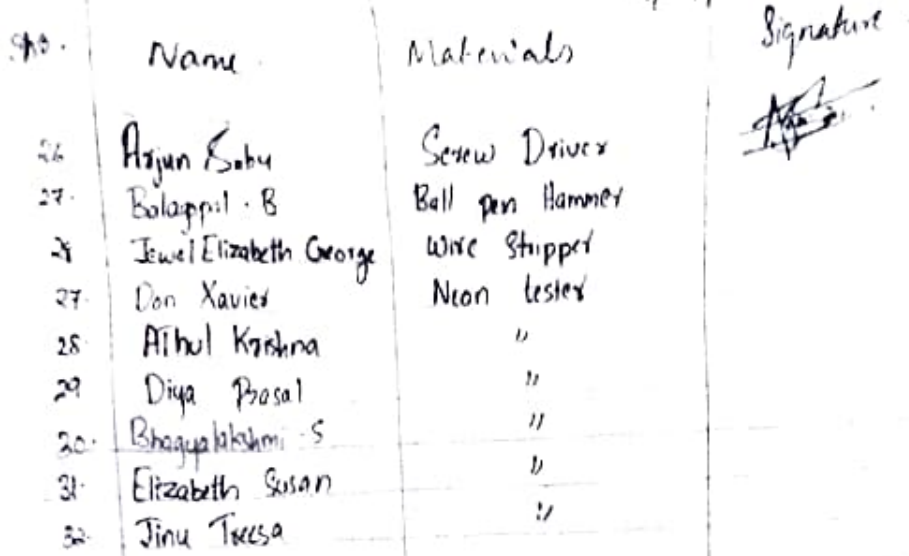 Name Materials Signature
26 Arjun Sabu Screw Driver
27. Balagopil . B Ball pen Hammer
28 Jewel Elizabeth George Wire Stripper
27. Don Xavier Neon tester
28 Athul Krishna "
29 Diya Basal "
30. Bhagyalakshmi . S "
31. Elizabeth Susan "
32. Jinu Treesa "